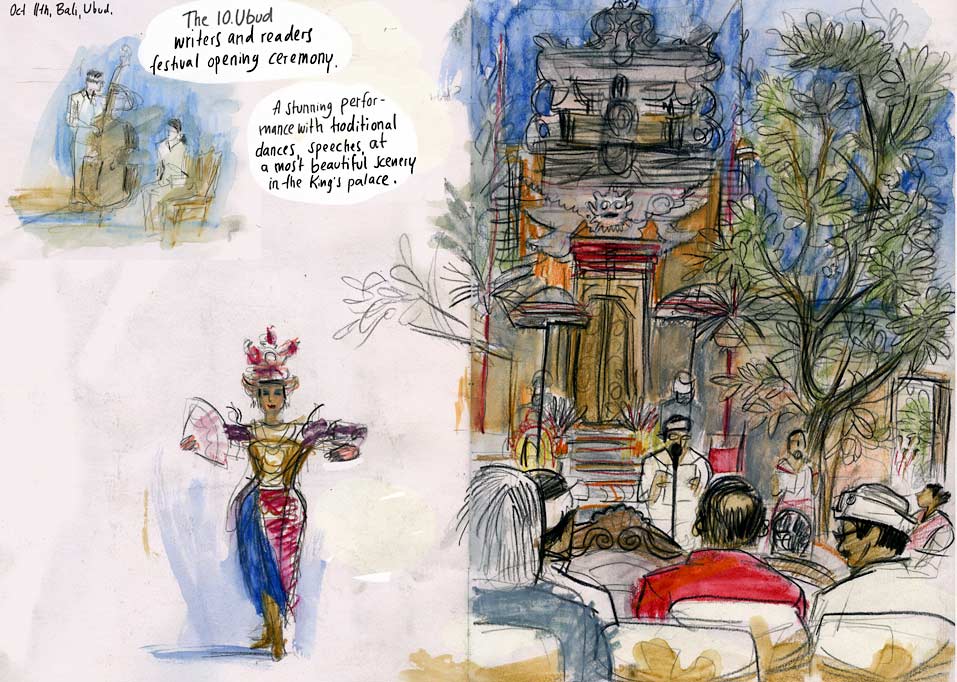 Oct 11th, Bali, Ubud.
The 10. Ubud
writers and readers
festival opening ceremony.
A stunning perfor-
mance with traditional
dances, speeches, at
a most beautiful scenery
in the King's palace.